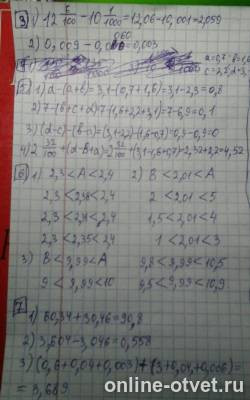 3) 1) 12 6/100 - 10 1/1000 = 12,06 - 10,001 = 2,059
2) 0,009 - 0,006 = 0,003
5) 1) d-(a+b)=3,1-(0,7+1,6)=3,1-2,3=0,8
2) 7-(b+c+d)=7-(1,6+2,2+3,1)=7-6,9=0,1
3) (d-c)-(b-a)=(3,1-2,2)-(1,6-0,7)=0,9-0,9=0
4) 2 32/100 +(d-b+a)=2 32/100 +(3,1-1,6+0,7)=2,32+2,2=4,52
6) 1) 2,3 < A < 2,4 2) B < 2,01 < A
2,3 < 2,38 < 2,4 2 < 2,01 < 5
2,3 < 2,31 < 2,4 1,5 < 2,01 < 4
2,3 < 2,35 < 2,4 1 < 2,01 < 3
3) B < 9,99 < A 9,8 < 9,99 < 10,5
9 < 9,99 < 10 9,5 < 9,99 < 10,9
7
1) 60,34 + 30,46 = 90,8
2) 3,604 - 3,046 = 0,558
3) (0,6 + 0,04 + 0,003) + (3 + 0,04 + 0,006) =
= 3,689
online-otvet.ru